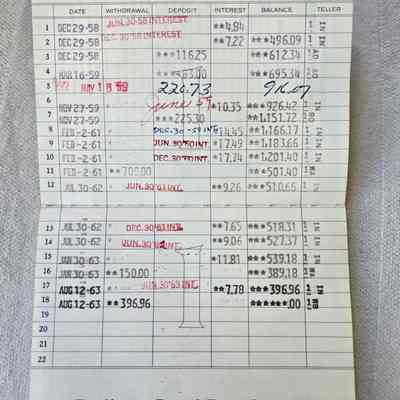 DATE WITHDRAWAL DEPOSIT INTEREST BALANCE TELLER
1 DEC 29-58 JUN.30-58 INTEREST **4.84 1 IN
2 DEC 29-58 DEC 30-58 INTEREST **7.22 ***496.09 1 IN
3 DEC 29-58 ***116.25 ***612.34 1
4 MAR 16-59 ***83.00 ***695.34 1
5 MAY 1 8 59 224.73
6 NOV 27-59 June 59 *10.35 ***926.42 1 IN
7 NOV 27-59 ***225.30 *1,151.72 1
8 FEB-2-61 DEC.30-59 INT *14.45 *1,166.17 1 IN
9 FEB-2-61 JUN.30'60 INT *17.49 *1,183.66 1 IN
10 FEB-2-61 DEC.30'60 INT *17.74 *1,201.40 1 IN
11 FEB-2-61 **700.00 ***501.40 1
12 JUL 30-62 JUN.30'61 INT. **9.26 ***510.66 1 IN
13 JUL 30-62 DEC.30'61 INT. **7.65 ***518.31 1 IN
14 JUL 30-62 JUN.30'62 INT **9.06 ***527.37 1 IN
15 JAN 30-63 *11.81 ***539.18 1 IN
16 JAN 30-63 **150.00 ***389.18 1
17 AUG 12-63 JUN.30'63 INT. **7.78 ***396.96 1 IN
18 AUG 12-63 **396.96 ******.00 1
19
20
21
22